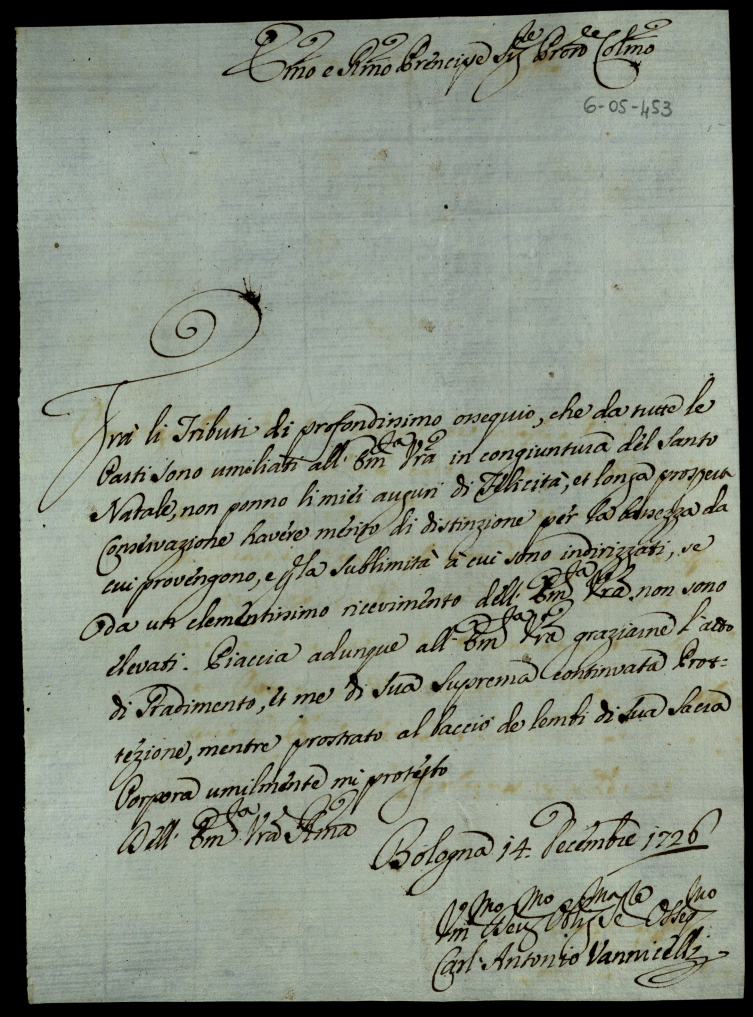 Emo e Rmo Prencipe Sig.re Prone Colmo
6-05-453
Frà li Tributi di profondissimo ossequio, che da tutte le
Parti sono umiliati all' Em.za Vra in congiuntura del Santo
Natale, non ponno li miei auguri di Felicità, et longa prospera
Conservazione havere merito di distinzione per la bassezza da
cui provengono, e la sublimità à cui sono indirizzati, se
da un clementissimo ricevimento dell' Em.za Vra non sono
elevati. Piaccia adunque all' Em.za Vra graziarne l'atto
di Gradimento, et me di sua suprema continuata Prot=
tezione, mentre prostrato al baccio de lembi di sua sacra
Porpora umilmente mi protesto
Dell' Em.za Vra Rma
Bologna 14. Decembre 1726
Um.mo Dev.mo Obl.mo Osseq.mo
Carl' Antonio Vannicelli